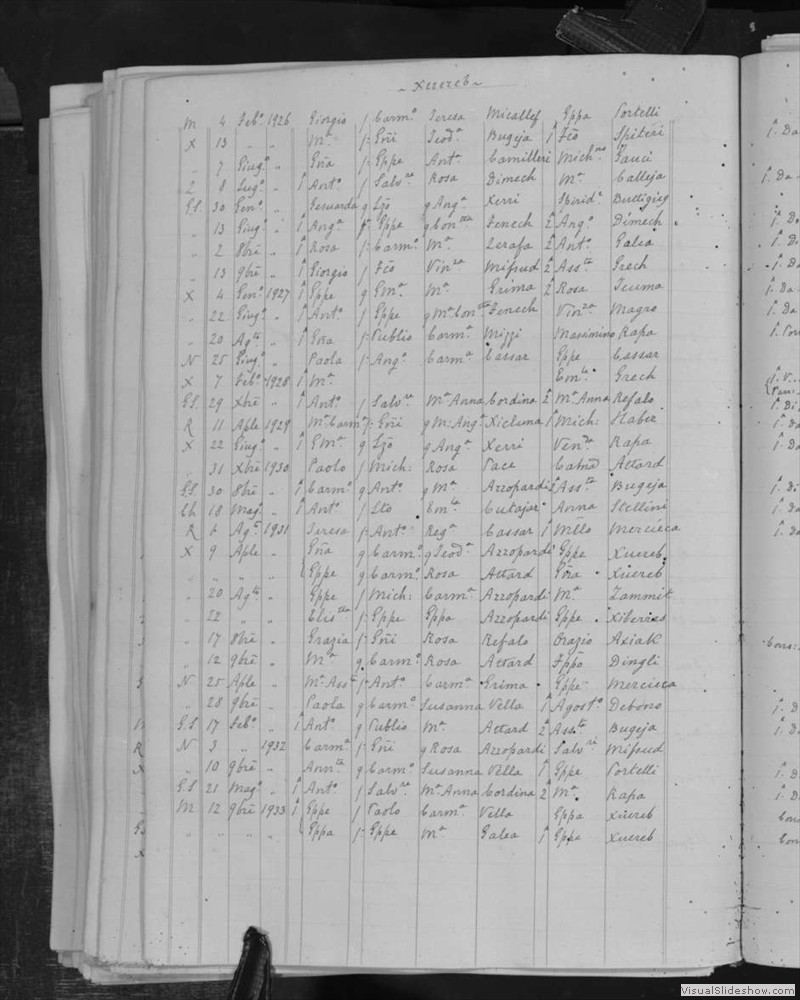 ~ Xuereb ~
M 4 Feb° 1926 Giorgio f Carm° Teresa Micallef Gppa Portelli
X 13 " " Mª f: Gñi Teodª Bugeja 1ª Fco Spiteri
" 7 Giugº " Gña f: Gppe Antª Camilleri Mich Gauci
2 8 Lugº " 1ª Antº f Salvre Rosa Dimech Mª Calleja
GS. 30 Genº " Gesuarda g Lzo g Angª Xerri Spiridª Buttigieg
" 13 Giugº " 1ª Angª f: Gppe g Conttª Zenech 2ª Angº Dimech
" 2 8bre " 1ª Rosa f: Carmº Mª Zerafa 2ª Antº Galea
" 13 9bre " 1ª Giorgio f Fco Vinzª Mifsud 2ª Asstª Grech
X 4 Genº 1927 1ª Gppe g Gmª Mª Grima 2ª Rosa Tcuma
" 22 Giugº " 1ª Antº f Gppe g Mª Conttª Zenech Vinzª Magro
" 20 Agto " 1ª Gña f: Publio Carmª Mizzi Massimino Rapa
N 25 Giugº " Paola f: Angº Carmª Cassar Gppe Cassar
X 7 Febº 1928 1ª Mª Emle Grech
GS. 29 Xbre " 1ª Antº f Salvre Mª Anna Cordina 2ª Mª Anna Refalo
R 11 Aple 1929 Mª Carmª f: Gñi g M: Angª Xicluna 1ª Mich: Haber
X 22 Giugº " 1ª Gmª g Lzo g Angª Xerri Vendª Rapa
" 31 Xbre 1930 Paolo f Mich: Rosa Pace Catnª Attard
GS. 30 8bre " 1ª Carmº g Antº g Mª Azzopardi 2ª Asstª Bugeja
Ch 18 Magº " 1ª Antº f Sto Emle Cutajar Anna Stellini
R 6 Agto 1931 Teresa f: Antº Regª Cassar 1ª Mllo Mercieca
X 9 Aple " Gña g Carmº g Teodª Azzopardi Gppe Xuereb
" " " " Gppe g Carmº Rosa Attard Gña Xuereb
" 20 Agto " Gppe f Mich: Carmª Azzopardi Mª Zammit
" 22 " " Elistta f: Gppe Gppa Azzopardi Gppe Xiberras
" 17 8bre " Grazia f: Gñi Rosa Refalo Orazio Axiak
" 12 9bre " Mª g Carmº Rosa Attard Fppo Dingli
N 25 Aple " Mª Asstª f: Antº Carmª Grima Gppe Mercieca
" 28 9bre " Paola g Carmº Susanna Vella 1ª Agostº Debono
GS 17 Febº " 1ª Antº g Publio Mª Attard 2ª Asstª Bugeja
N 3 " 1932 Carmª f: Gñi g Rosa Azzopardi Salvri Mifsud
" 10 9bre " Anntta g Carmº Susanna Vella 1ª Gppe Portelli
GS 21 Magº " 1ª Antº f Salvre Mª Anna Cordina 2ª Mª Rapa
M 12 9bre 1933 1ª Gppe f Paolo Carmª Vella Gppa Xuereb
" " " " Gppa f: Gppe Mª Galea 1ª Gppe Xuereb
VisualSlideshow.com